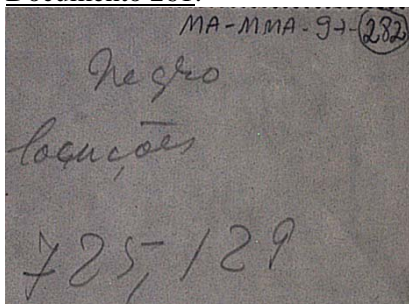 MA-MMA-97-282
Negro
locuções
725, 129